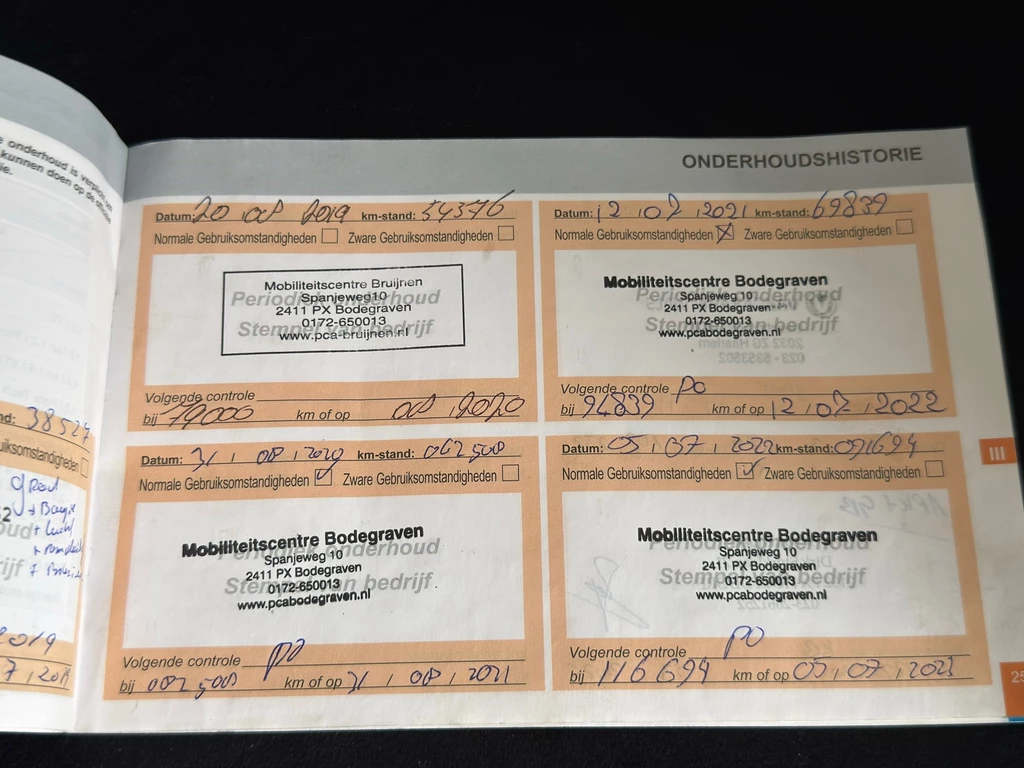 onderhoud is verplicht om
kunnen doen op de officiële
ie.
nd: 38527
uiksomstandigheden
2019
7, 2019
ONDERHOUDSHISTORIE
Datum: 20 08 2019 km-stand: 54376
Normale Gebruiksomstandigheden Zware Gebruiksomstandigheden
Periodiek onderhoud
Stempel van bedrijf
Mobiliteitscentre Bruijnen
Spanjeweg 10
2411 PX Bodegraven
0172-650013
www.pca-bruijnen.nl
Volgende controle
bij 79000 km of op 08, 2020
Datum: 12, 07, 2021 km-stand: 69839
Normale Gebruiksomstandigheden Zware Gebruiksomstandigheden
Periodiek onderhoud
Stempel van bedrijf
Mobiliteitscentre Bodegraven
Spanjeweg 10
2411 PX Bodegraven
0172-650013
www.pcabodegraven.nl
Volgende controle PO
bij 94839 km of op 12, 07, 2022
Datum: 31, 08, 2020 km-stand: 062508
Normale Gebruiksomstandigheden Zware Gebruiksomstandigheden
Periodiek onderhoud
Stempel van bedrijf
Mobiliteitscentre Bodegraven
Spanjeweg 10
2411 PX Bodegraven
0172-650013
www.pcabodegraven.nl
Volgende controle PO
bij 082508 km of op 31, 08, 2021
Datum: 05, 07, 2022 km-stand: 091694
Normale Gebruiksomstandigheden Zware Gebruiksomstandigheden
Periodiek onderhoud
Stempel van bedrijf
Mobiliteitscentre Bodegraven
Spanjeweg 10
2411 PX Bodegraven
0172-650013
www.pcabodegraven.nl
Volgende controle PO
bij 116694 km of op 05, 07, 2023
III
25